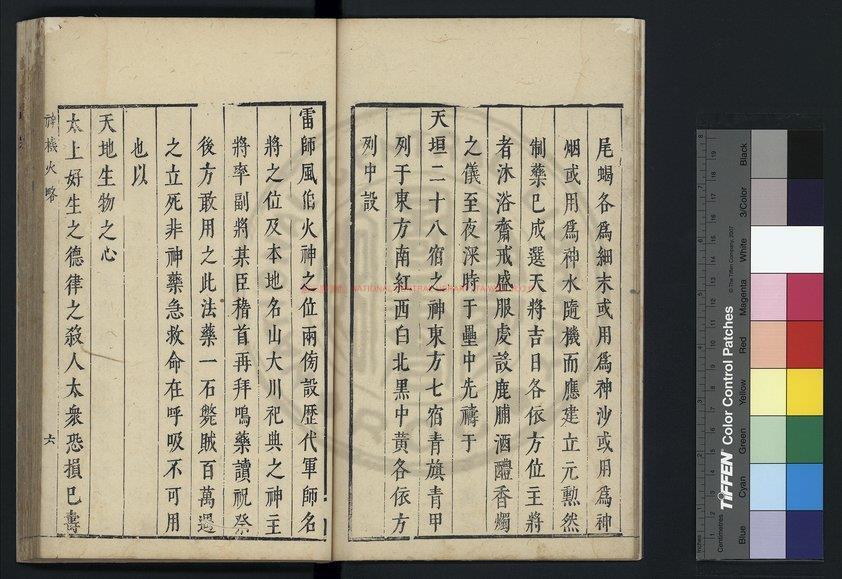 尾蝎各爲細末或用爲神沙或用爲神
烟或用爲神水隨機而應建立元勲然
制藥已成選天將吉日各依方位主將
者沐浴齋戒盛服虔設鹿脯酒醴香燭
之儀至夜深時于壘中先禱于
天垣二十八宿之神東方七宿青旗青甲
列于東方南紅西白北黑中黄各依方
列中設
雷師風伯火神之位兩傍設歷代軍師名
將之位及本地名山大川祀典之神主
將率副將某臣稽首再拜鳴藥讀祝祭
後方敢用之此法藥一石斃賊百萬遇
之立死非神藥急救命在呼吸不可用
也以
天地生物之心
太上好生之德律之殺人太衆恐損巳壽
神機火略
六
NATIONAL CENTRAL LIBRARY
TIFFEN Color Control Patches
© The Tiffen Company, 2007
Centimetres
Inches
Blue
Cyan
Green
Yellow
Red
Magenta
White
3/Color
Black